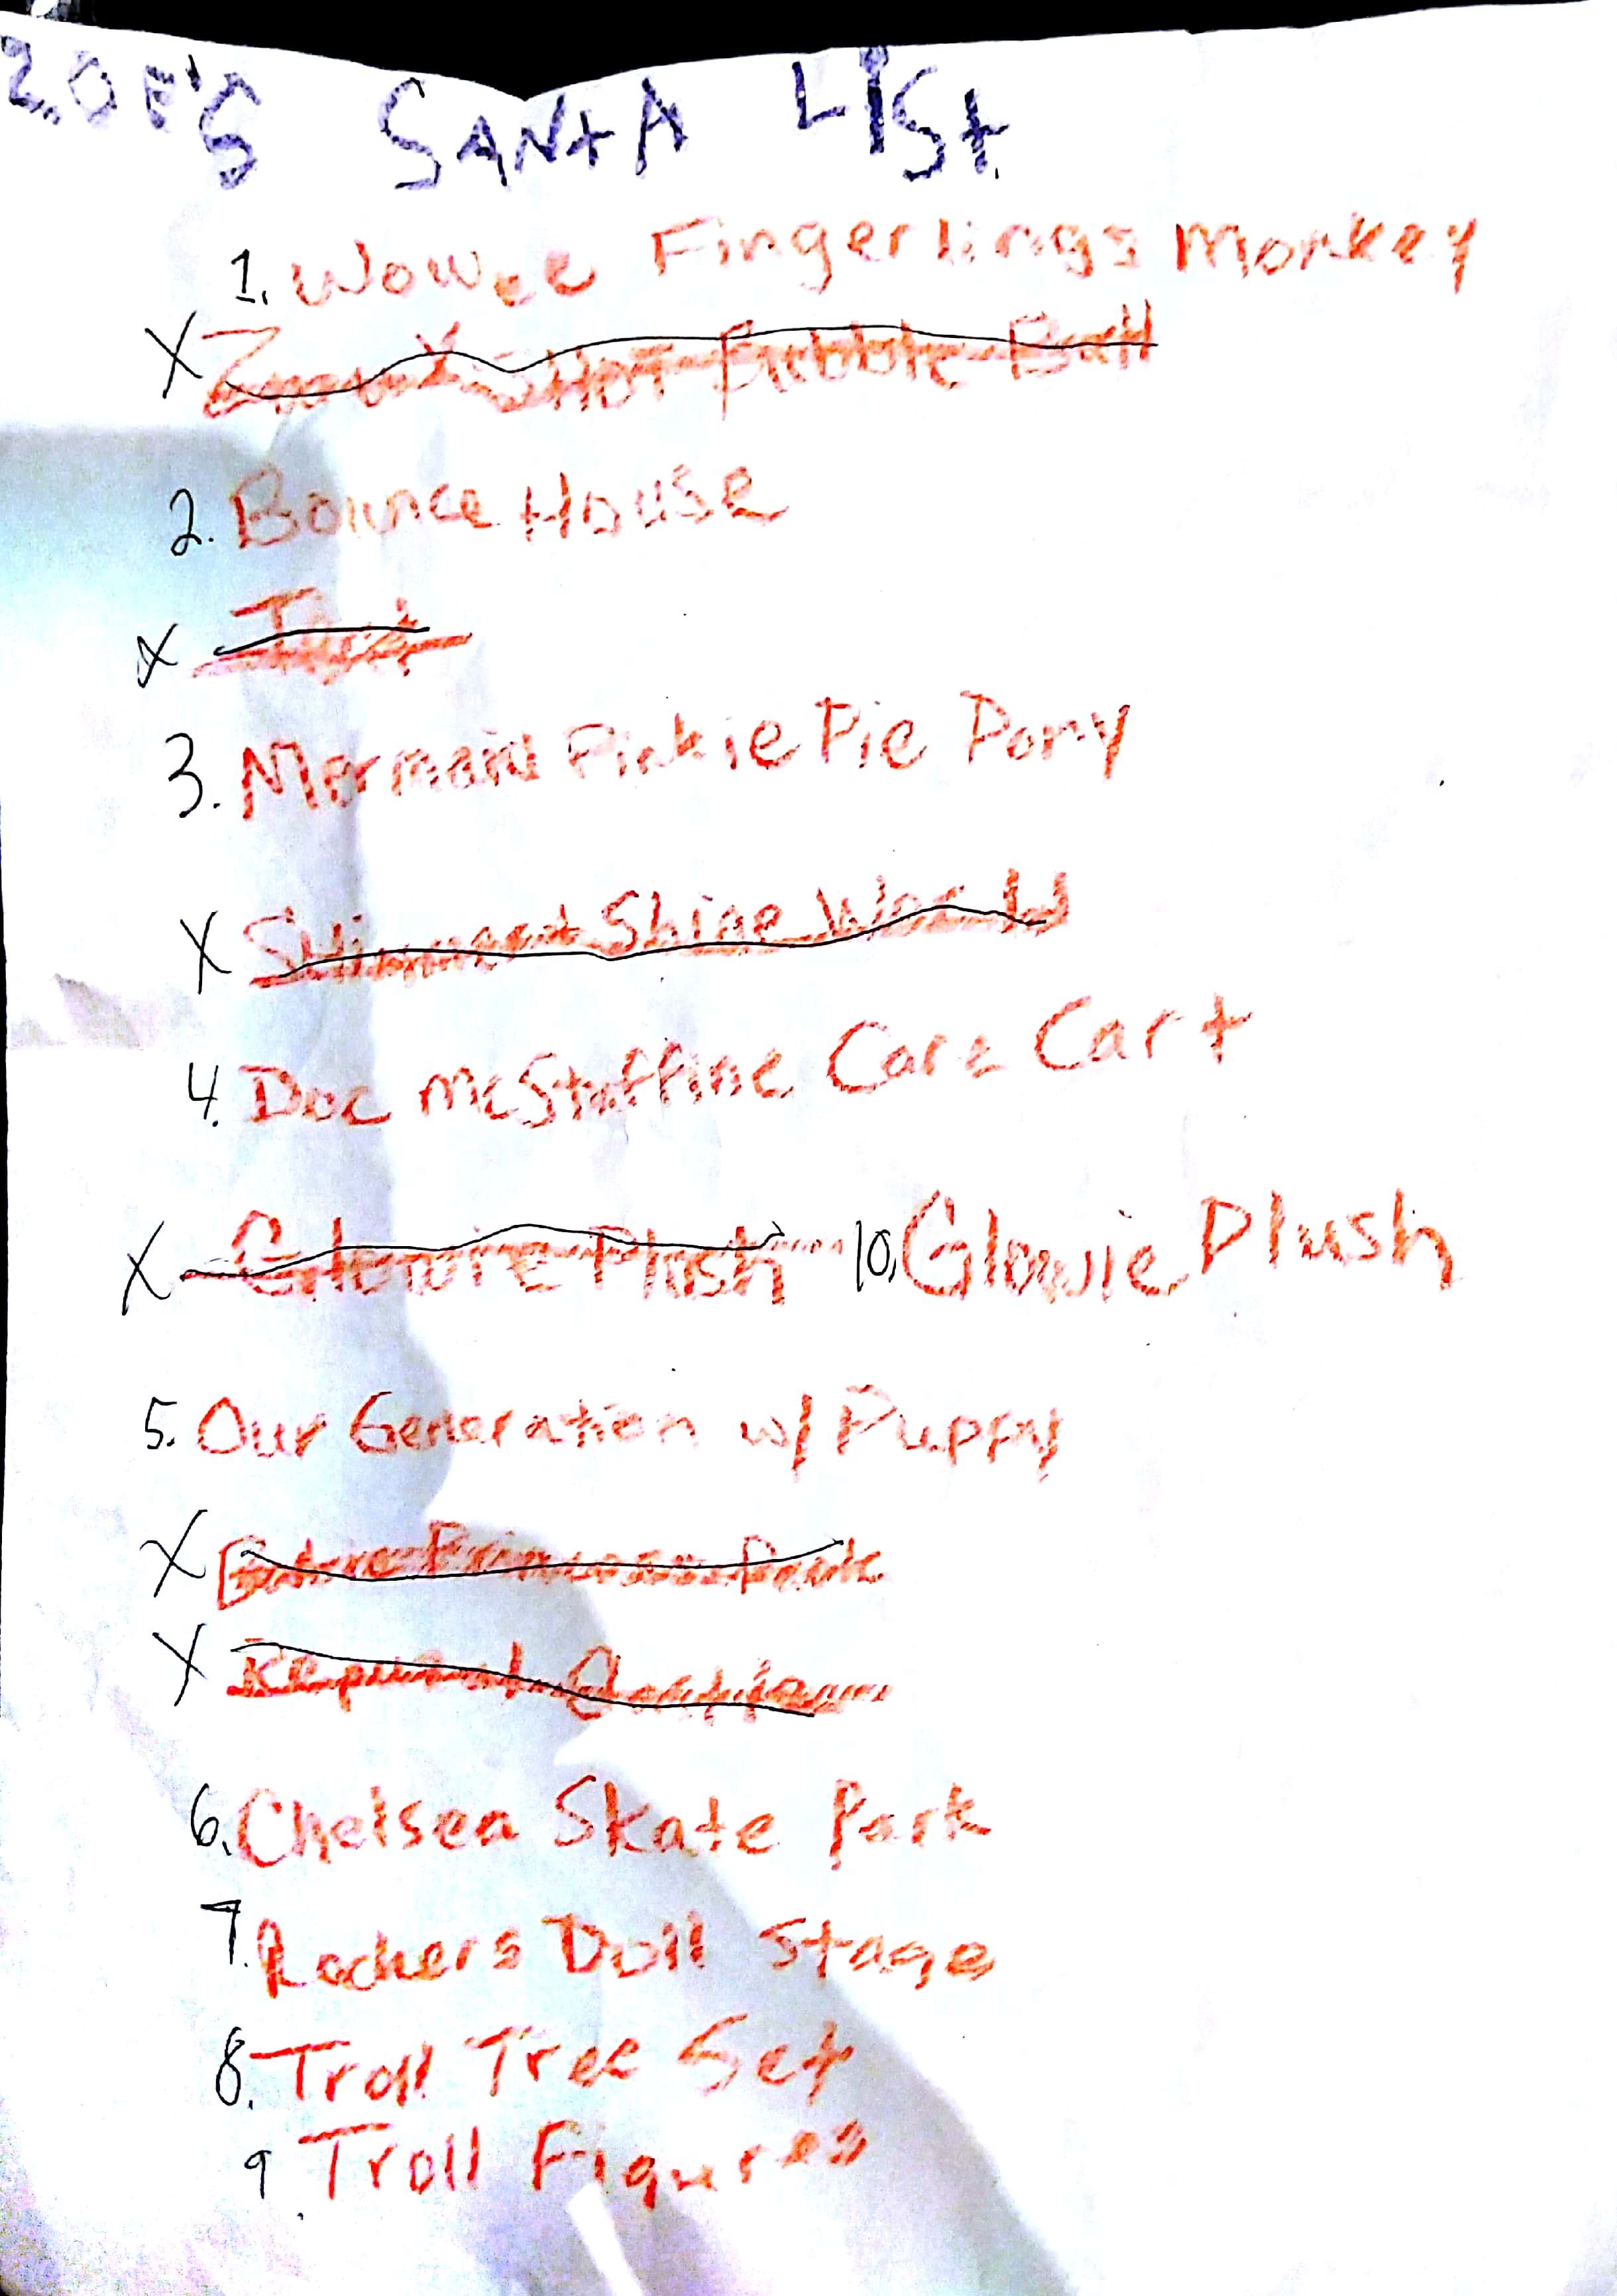 ZOE'S SANTA LIST
1. WowEE Fingerlings Monkey
X Shot Bubble Ball
2. Bounce House
X
3. Mermaid Pinkie Pie Pony
X Shimmer + Shine World
4. Doc McStuffins Care Cart
X Glowie Plush 10. Glowie Plush
5. Our Generation w/ Puppy
X
X
6. Chelsea Skate Park
7. Rockers Doll Stage
8. Troll Tree Set
9. Troll Figures